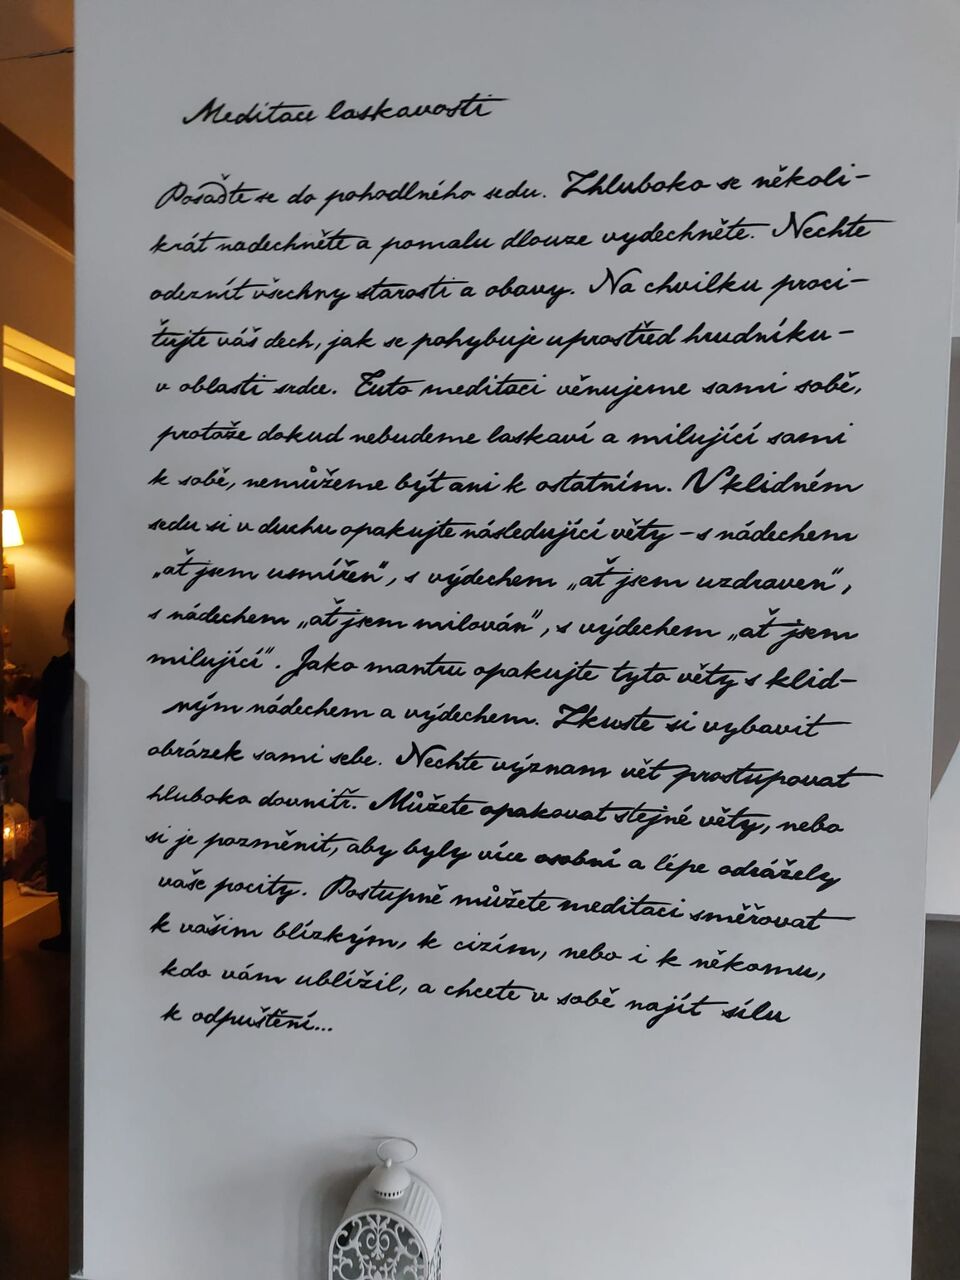 Meditace laskavosti
Posaďte se do pohodlného sedu. Zhluboka se několi-
krát nadechněte a pomalu dlouze vydechněte. Nechte
odeznít všechny starosti a obavy. Na chvilku proci-
ťujte váš dech, jak se pohybuje uprostřed hrudníku -
v oblasti srdce. Tuto meditaci věnujeme sami sobě,
protože dokud nebudeme laskaví a milující sami
k sobě, nemůžeme být ani k ostatním. V klidném
sedu si v duchu opakujte následující věty - s nádechem
„ať jsem usmířen“, s výdechem „ať jsem uzdraven“,
s nádechem „ať jsem milován“, s výdechem „ať jsem
milující“. Jako mantru opakujte tyto věty s klid-
ným nádechem a výdechem. Zkuste si vybavit
obrázek sami sebe. Nechte význam vět prostupovat
hluboko dovnitř. Můžete opakovat stejné věty, nebo
si je pozměnit, aby byly více osobní a lépe odrážely
vaše pocity. Postupně můžete meditaci směřovat
k vašim blízkým, k cizím, nebo i k někomu,
kdo vám ublížil, a chcete v sobě najít sílu
k odpuštění...